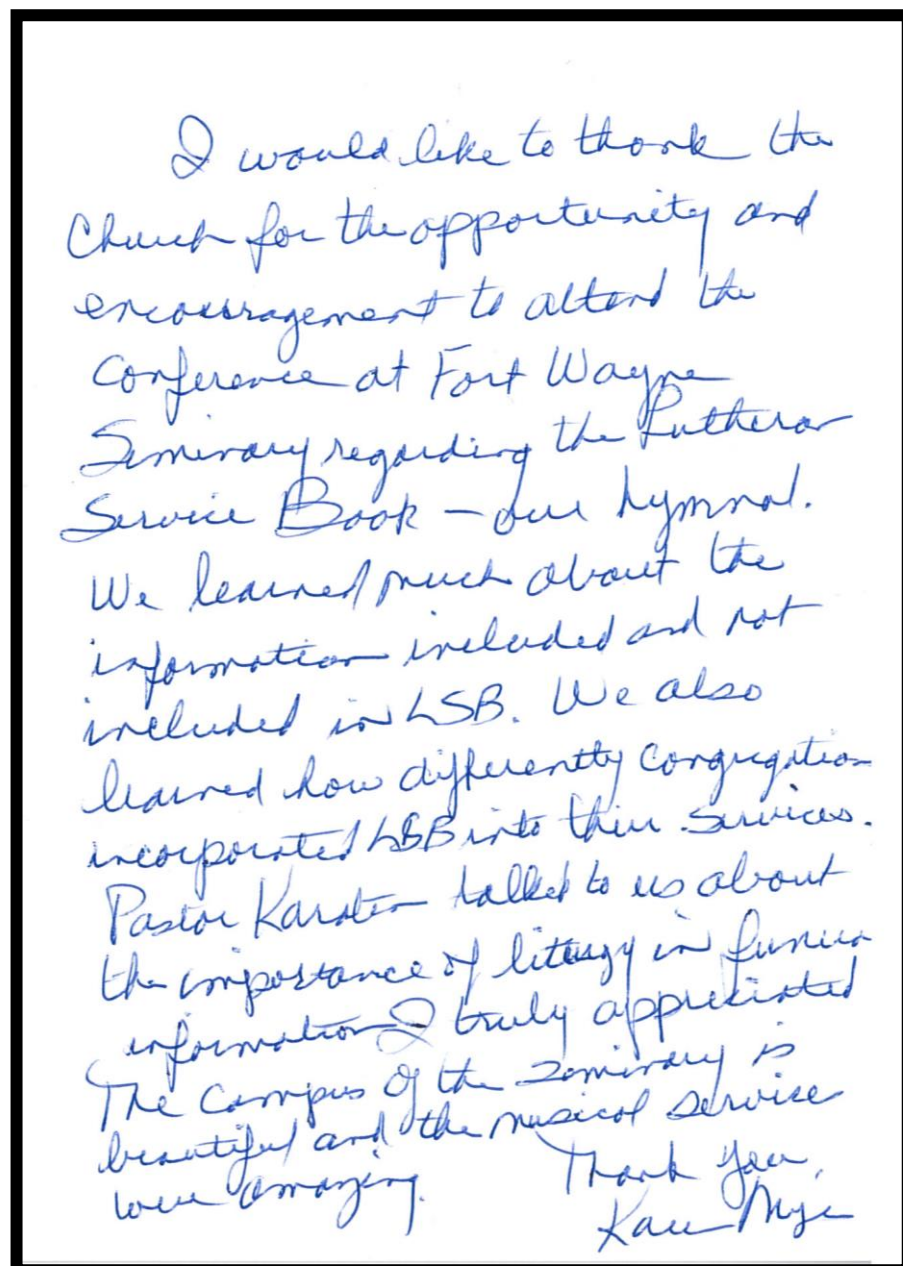 I would like to thank the
Church for the opportunity and
encouragement to attend the
conference at Fort Wayne
Seminary regarding the Lutheran
Service Book – our hymnal.
We learned much about the
information included and not
included in LSB. We also
learned how differently congregation
incorporated LSB into their services.
Pastor talked to us about
the importance of liturgy in
information I truly appreciated
The campus of the seminary is
beautiful and the musical service
were amazing. Thank you,